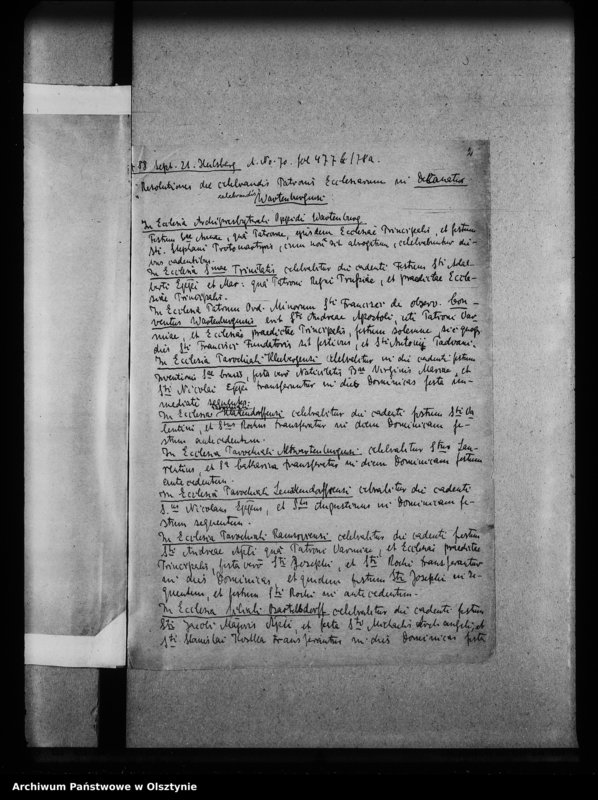 2
88 Sept. 21. Heilsberg A. No. 70. fol 477b/78a.
"Resolutiones de celebrandis Patronis Ecclesiarum in Decanatu
celebrandis Wartenburgensi
In Ecclesia Archipresbytrali Oppidi Wartenburg
Festum Stae Annae, quà Patronae, ejusdem Ecclesiae Principalis, et festum
Sti. Stephani Protomartyris, cum non sit abrogatum, celebrabuntur die-
bus cadentibus.
In Ecclesia Smae Trinitatis celebrabitur die cadenti Festum Sti Adal-
berti Eppi et Mar: quà Patroni Regni Prussiae, et praedictae Eccle-
siae Principalis.
In Ecclesia Patrum Ord. Minorum Sti Francisci de observ. Con-
ventus Wartenburgensis erit Sti Andreae Apostoli, uti Patroni Var-
miae, et Ecclesiae praedictae Principalis, festum solemne, sicq quoq
dies Sti Francisci Fundatoris sit festivus, et Sti Antonij Padvani.
In Ecclesia Parochiali Klebergensi celebrabitur in die cadenti festum
Inventionis Stae Crucis, festa verò Nativitatis Bae Virginis Mariae, et
Sti Nicolai Eppi transferuntur in dies Dominicas festa im-
mediatè sequentes.
In Ecclesia celebrabitur die cadenti festum Sti Va
lentini, et Stus Rochus transferatur in diem Dominicam fe-
stum antecedentem.
In Ecclesia Parochiali Altwartenburgensi, celebrabitur Stus Lau-
rentius, et Sa Catharina transferetur in diem Dominicam festum
antecedentem.
In Ecclesia Parochiali Lemkendorffensi celebrabitur die cadenti
S.us Nicolaus Eppus, et S.tus Augustinus in Dominicam fe-
stum sequentem.
In Ecclesia Parochiali Ramsoviensi celebrabitur die cadenti festum
Sti Andreae Apli quà Patroni Varmiae, et Ecclesiae praedictae
Principalis, festa verò Sti Josephi, et Sti Rochi transferantur
in dies Dominicas, et quidem festum Sti Josephi in se-
quentem, et festum Sti Rochi in antecedentem.
In Ecclesia filiali Bartelsdorff celebrabitur die cadenti festum
Sti Jacobi Majoris Apli, et festa Sti Michaelis Archangeli, et
Sti Stanislai Kostka transferantur in dies Dominicas festa
Archiwum Państwowe w Olsztynie